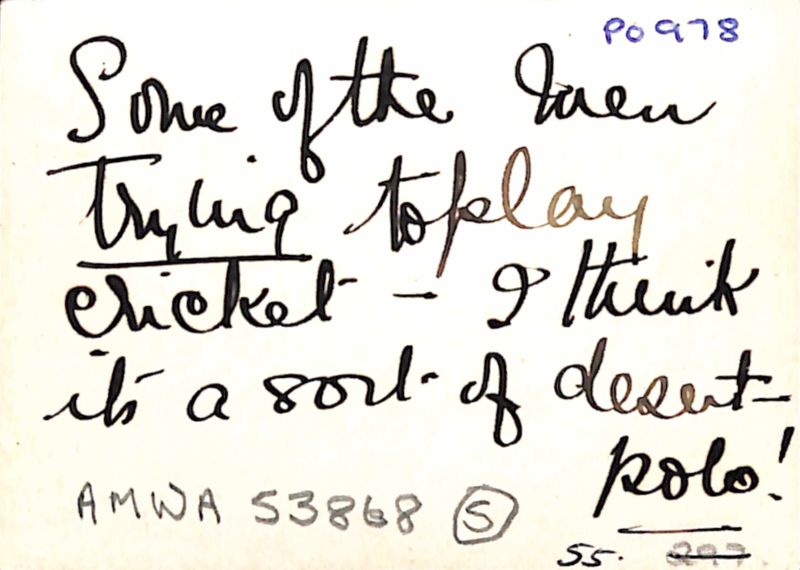 PO978
Some of the men
trying to play
cricket - I think
it's a sort of desert-
polo!
AMWA 53868 S
55.